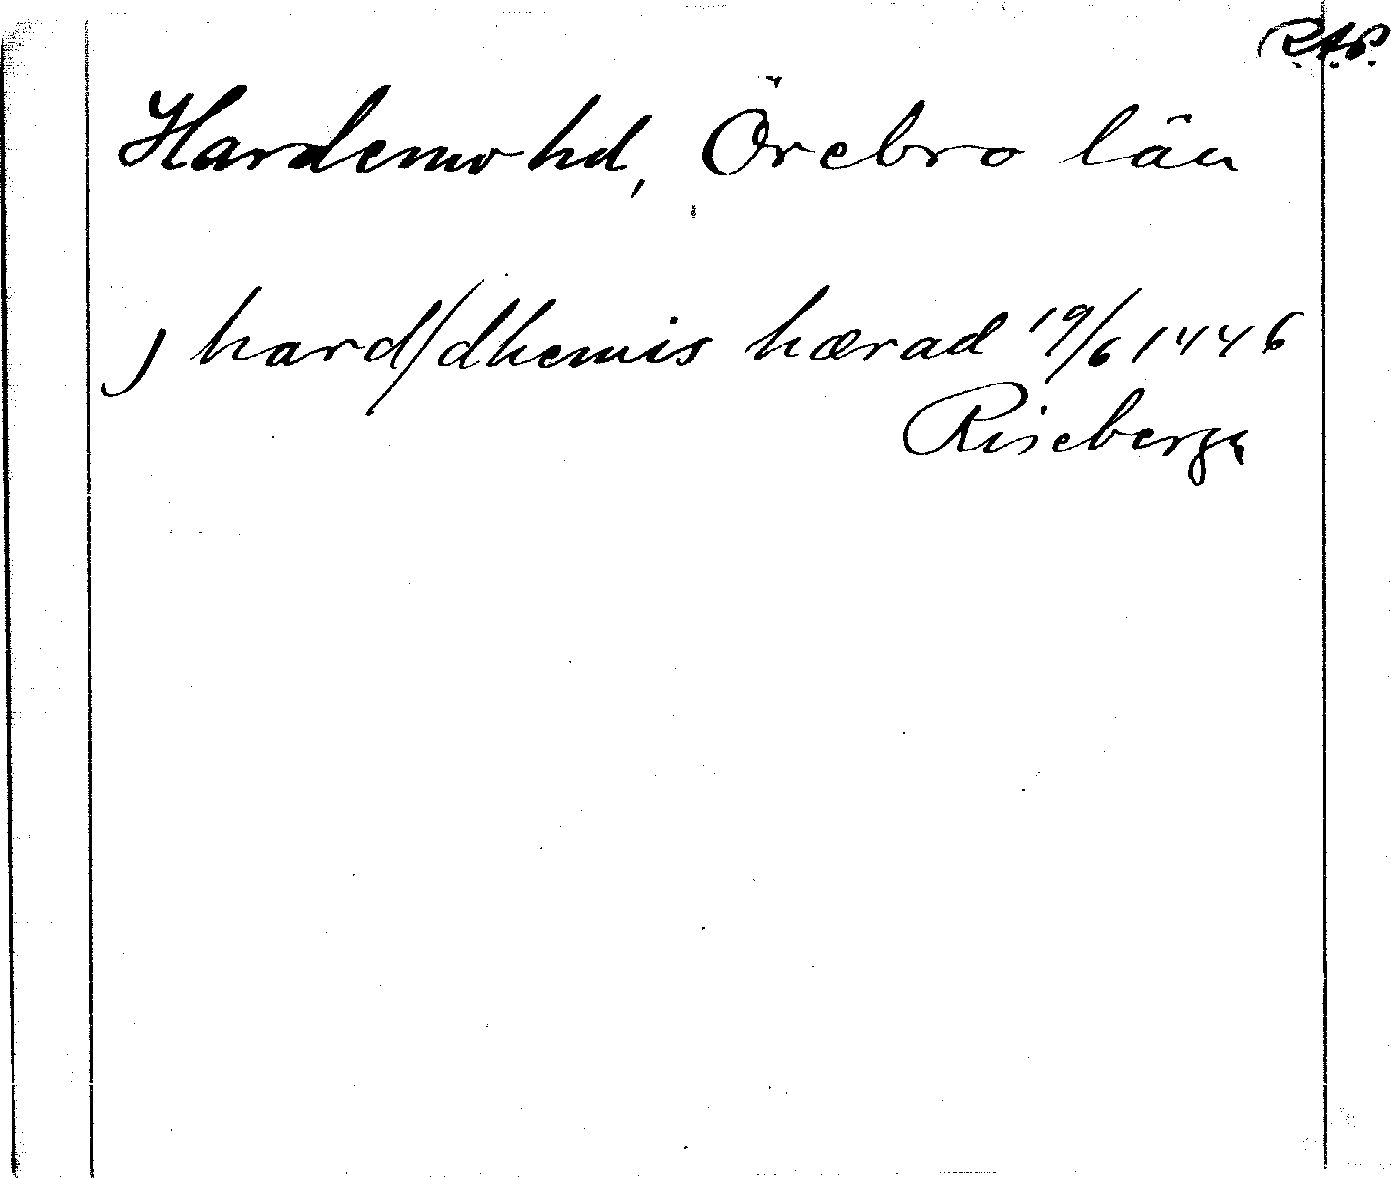 R.A.P.
Hardemo hd, Örebro län
j hard/dhemis hærad 19/6 1446
Riseberga